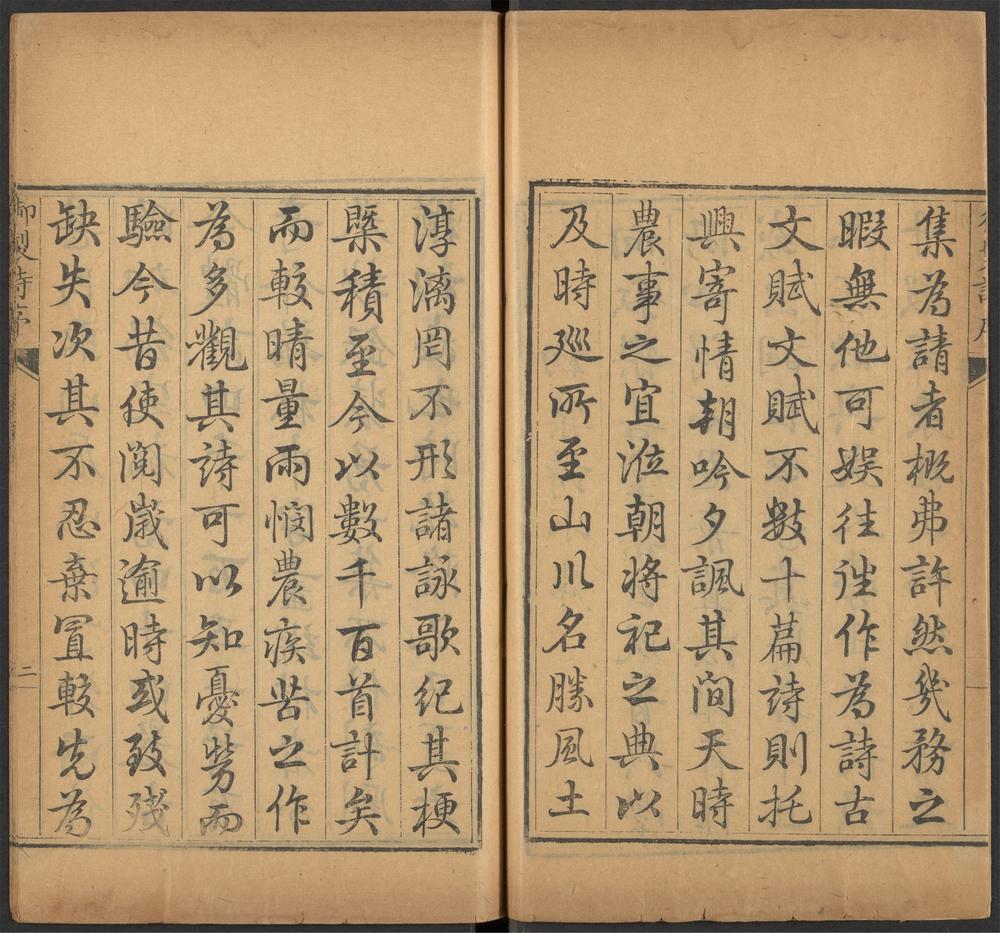 集為請者概弗許然幾務之
暇無他可娱往往作為詩古
文賦文賦不數十篇詩則托
興寄情朝吟夕諷其間天時
農事之宜涖朝將祀之典以
及時廵所至山川名勝風土
淳漓罔不形諸詠歌紀其梗
槩積至今以數千百首計矣
而較晴量雨憫農疾苦之作
為多觀其詩可以知憂勞而
驗今昔使閱歲逾時或致殘
缺失次其不忍棄置較先為
御製詩序
二